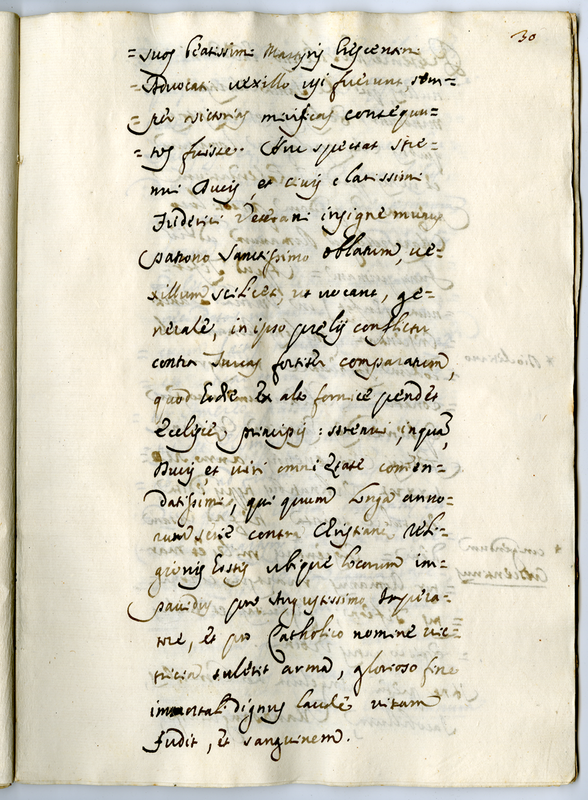 30
= suos beatissimi Martyris Crescentini
= Advocati vexillo usi fuerunt, sem=
= per victorias mirificas consequu=
= tos fuisse. Huc spectat stre=
nui Ducis, et civis clarissimi
Federici Veterani insigne munus
patrono Sanctissimo oblatum, ve=
xillum scilicet, ut vocant, ge=
nerale, in ipso prelij conflictu
contra Turcas fortiter comparatum,
quod hodie ex alto fornice pendet
Ecclesie principis: strenui, inquam,
Ducis, et viri omni etate comen=
datissimi, qui quum longa anno=
rum serie contra Christiane Reli=
gionis hostes ubique locorum im=
pavidus pro Augustissimo Impera=
tore, et pro Catholico nomine vic=
tricia tulerit arma, glorioso fine
immortali dignus laude vitam
fudit, et sanguinem.